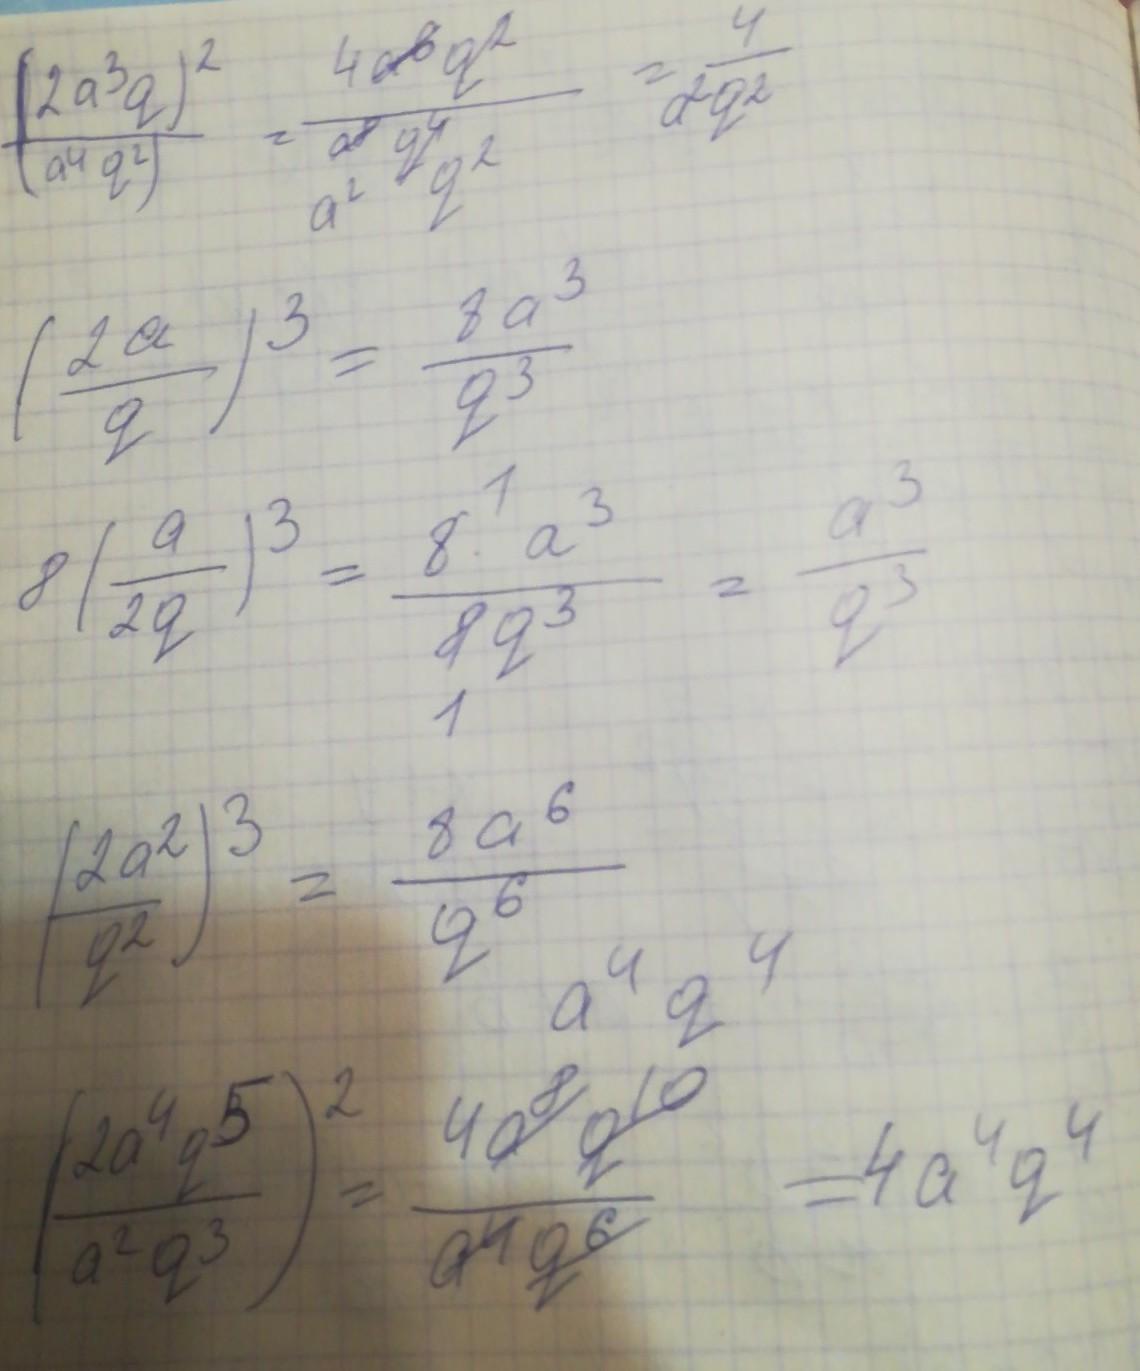 (2a³q)²/(a⁴q²) = 4a⁶q²/a⁸q⁴ = 4/a²q²
a² q²
(2a/q)³ = 8a³/q³
8(a/2q)³ = 8¹·a³/8q³ = a³/q³
1
(2a²/q²)³ = 8a⁶/q⁶
a⁴ q⁴
(2a⁴q⁵/a²q³)² = 4a⁸q¹⁰/a⁴q⁶ = 4a⁴q⁴